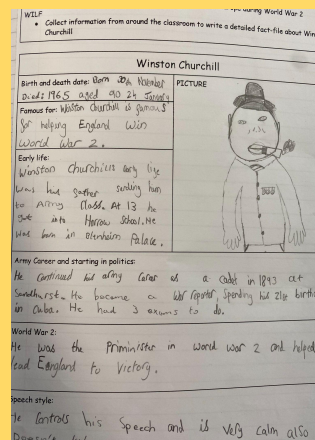 WILF
during World War 2
• Collect information from around the classroom to write a detailed fact-file about Win
Churchill
Winston Churchill
Birth and death date: Born 30th November
Died: 1965 aged 90 24 January
PICTURE
Famous for: Winston Churchill is famous
for helping England win
World War 2.
Early life:
Winston Churchills early life
was his father sending him
to Army Class. At 13 he
got into Harrow School. He
was born in Blenheim
Palace.
Army Career and starting in politics:
He continued his army career as a cadet in 1893 at
Sandhurst. He became a War reporter, spending his 21st birth
in Cuba. He had 3 exams to do.
World War 2:
He was the Priminister in World War 2 and helped
lead England to Victory.
Speech style:
He controls his speech and is very calm also